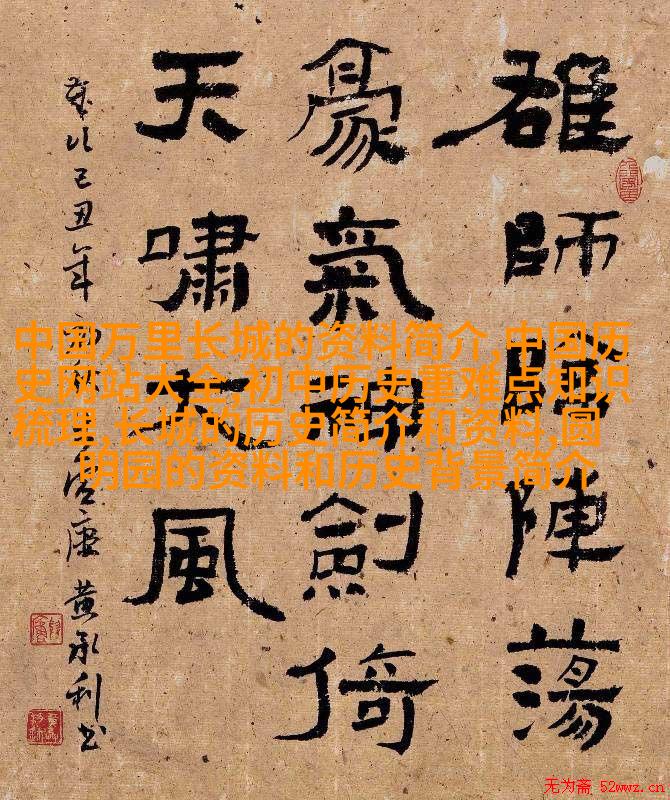 雄師陣蕩
豪氣劍倚
天嘯風
歲次己丑年
黄承利书
中国万里长城的资料简介,中国历
史网站大全,初中历史重难点知识
梳理,长城的历史简介和资料,圆
明园的资料和历史背景简介
无为斋 52wwz.cn